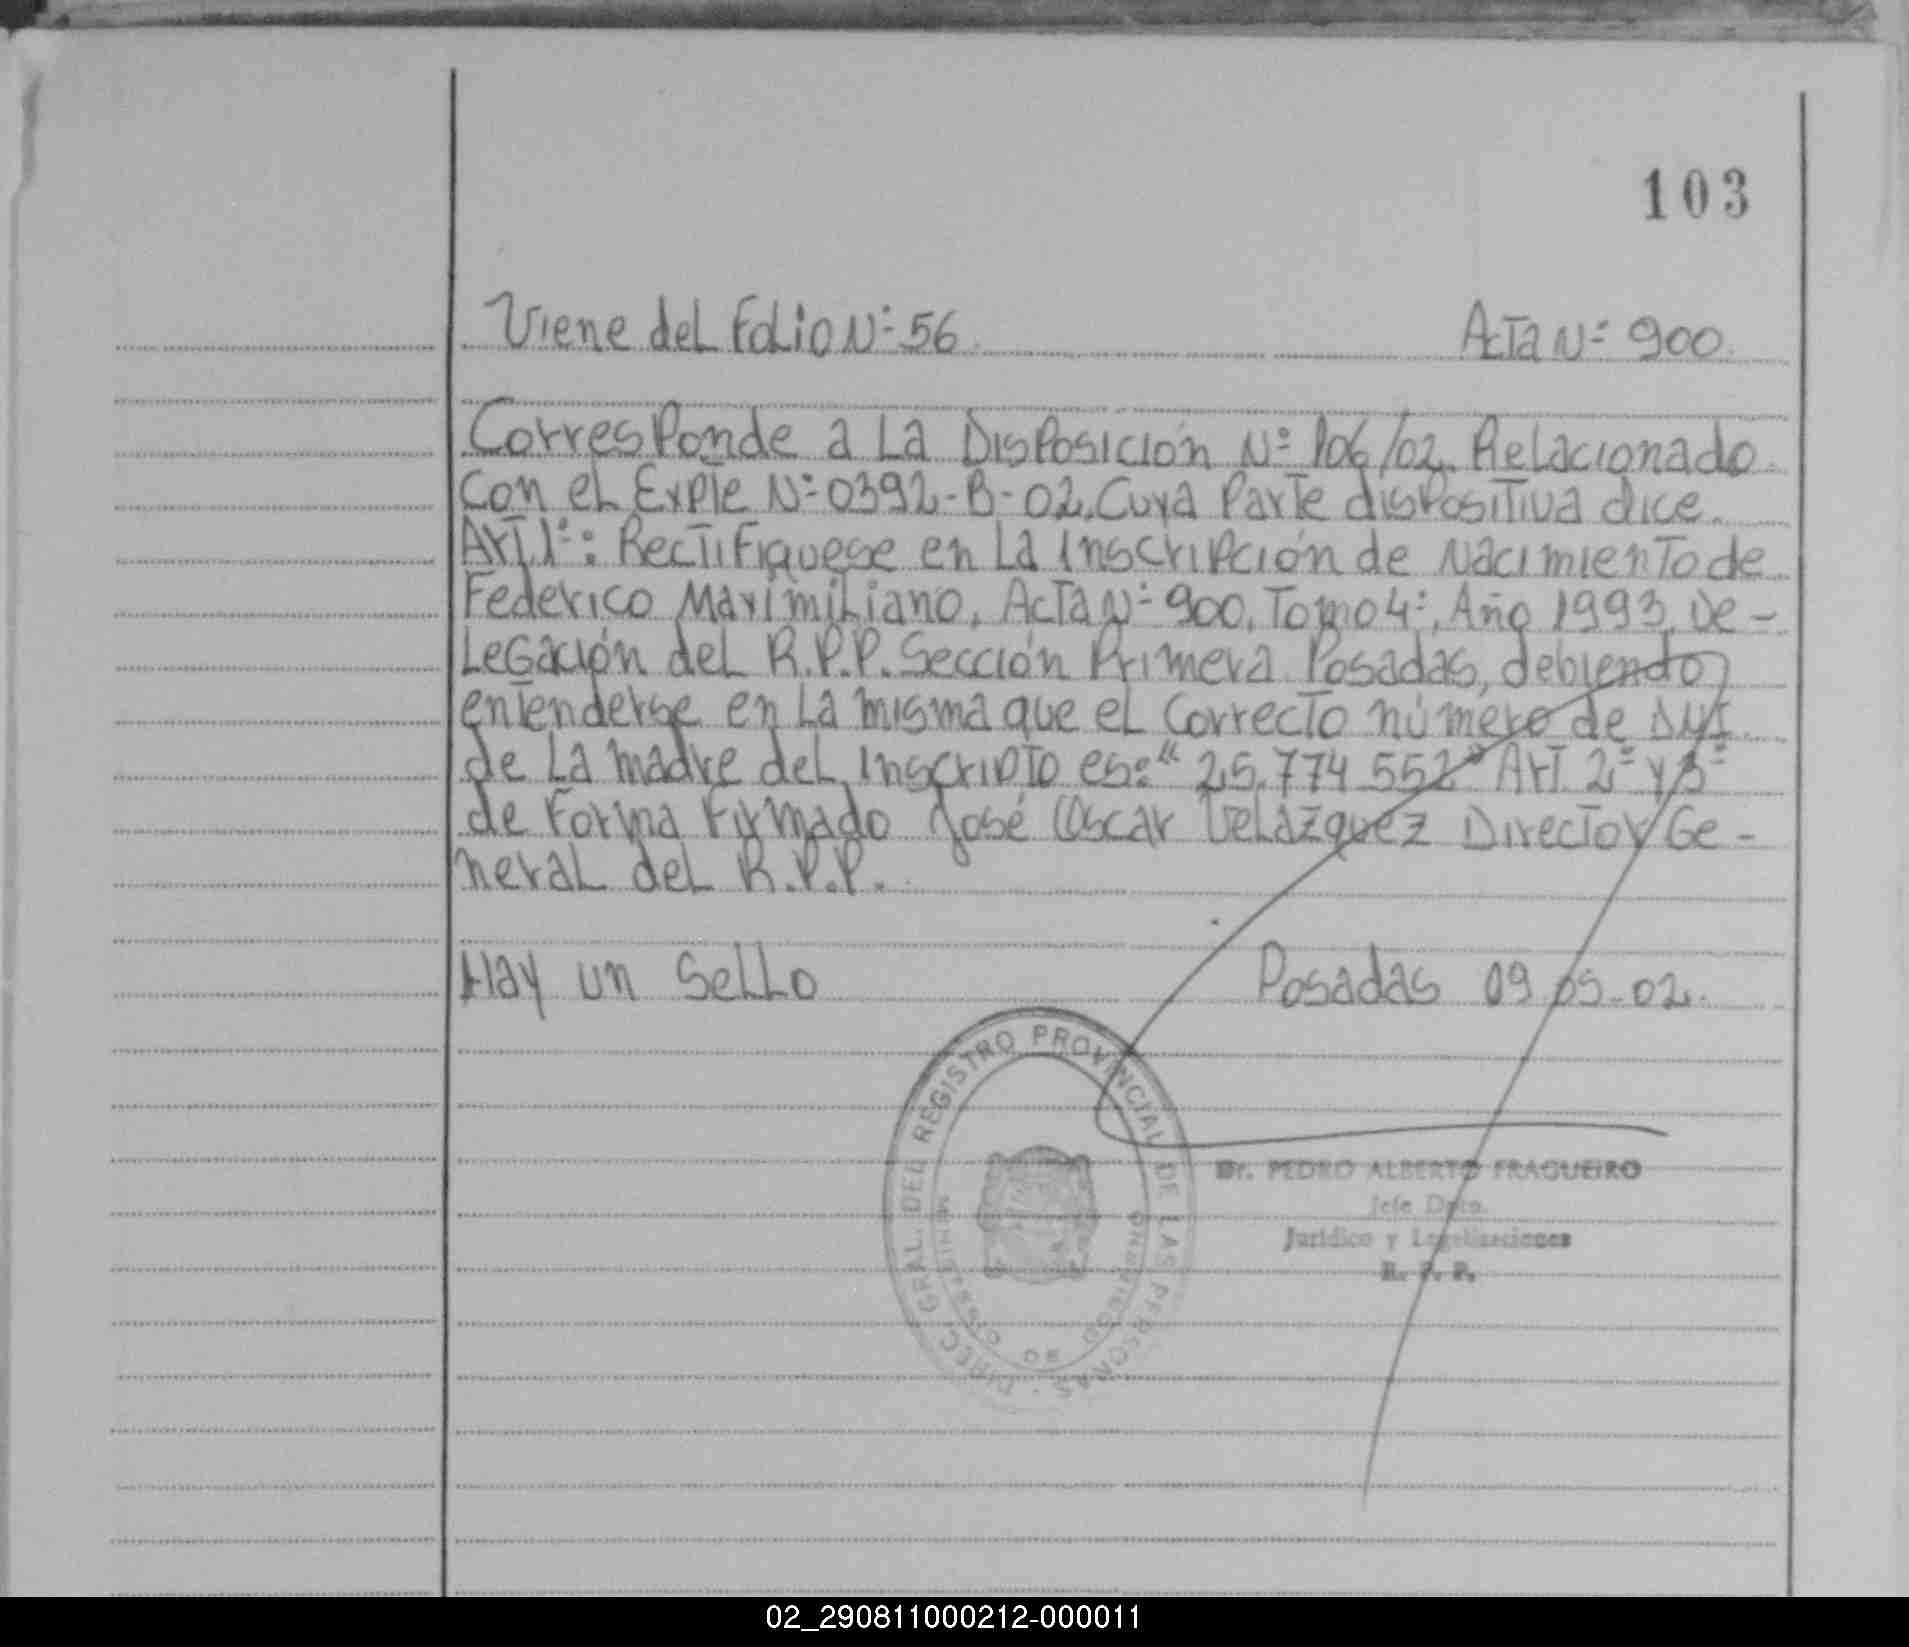 103
Viene del Folio Nº 56 Acta Nº 900
Corresponde a La Disposición Nº 106/02, Relacionado
Con el Expte Nº 0392-B-02, Cuya Parte dispositiva dice.
Art. 1º: Rectifiquese en La Inscripción de Nacimiento de
Federico Maximiliano, Acta Nº 900, Tomo 4º, Año 1993, De-
Legación del R.P.P. Sección Primera Posadas, debiendo
entenderse en La misma que el Correcto número de DNI
de La madre del Inscripto es: "25.774.552" Art. 2º y 3º
de Forma Firmado José Oscar Velázquez Director Ge-
neral del R.P.P.
Hay un Sello Posadas 09-05-02.
DIREC. GRAL. DEL REGISTRO PROVINCIAL DE LAS PERSONAS
Dr. PEDRO ALBERTO FRAGUEIRO
Jefe Dpto.
Jurídico y Legalizaciones
R. P. P.
02_290811000212-000011